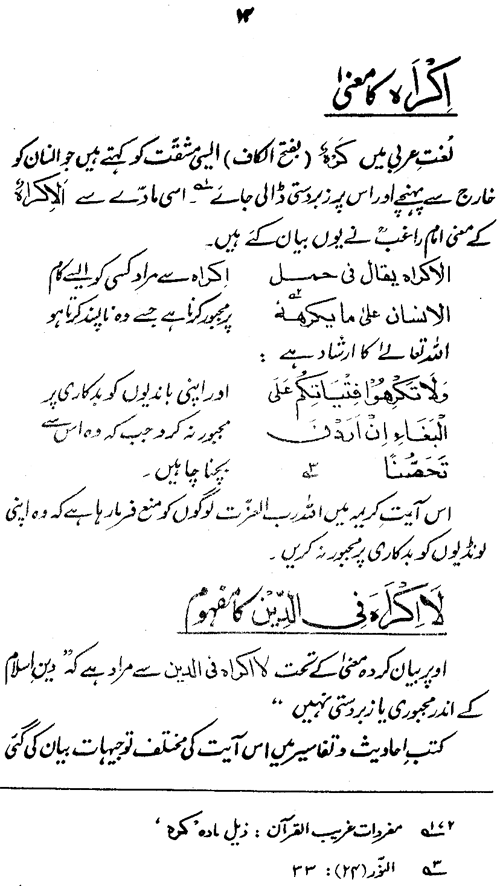 ۱۲
اِکْرَاہ کا معنیٰ
لُغتِ عربی میں کَرْہٌ (بفتح الکاف) ایسی مشقّت کو کہتے ہیں جو انسان کو
خارج سے پہنچے اور اس پر زبردستی ڈالی جائے۱؎۔ اسی مادّے سے اَلْاِکْرَاہُ
کے معنی امام راغبؒ نے یوں بیان کئے ہیں۔
الاکراہ یقال فی حمل اِکراہ سے مراد کسی کو ایسے کام
الانسان علیٰ ما یکرھہٗ ۲؎ پر مجبور کرنا ہے جسے وہ ناپسند کرتا ہو
اللہ تعالےٰ کا ارشاد ہے :
وَلَا تُکْرِھُوْا فَتَیَاتِکُمْ عَلَی اور اپنی باندیوں کو بدکاری پر
الْبِغَاءِ اِنْ اَرَدْنَ مجبور نہ کرو جب کہ وہ اس سے
تَحَصُّنًا ۳؎ بچنا چاہیں۔
اس آیتِ کریمہ میں اللہ رب العزّت لوگوں کو منع فرما رہا ہے کہ وہ اپنی
لونڈیوں کو بدکاری پر مجبور نہ کریں۔
لَا اِکْرَاہَ فِی الدِّیْنِ کا مفہوم
اوپر بیان کردہ معنیٰ کے تحت لا اکراہ فی الدین سے مراد ہے کہ ”دینِ اسلام
کے اندر مجبوری یا زبردستی نہیں“
کتبِ احادیث و تفاسیر میں اس آیت کی مختلف توجیہات بیان کی گئی
۱،۲؎ مفردات غریب القرآن : ذیل مادہ ’کرہ‘
۳؎ النّور (۲۴): ۳۳